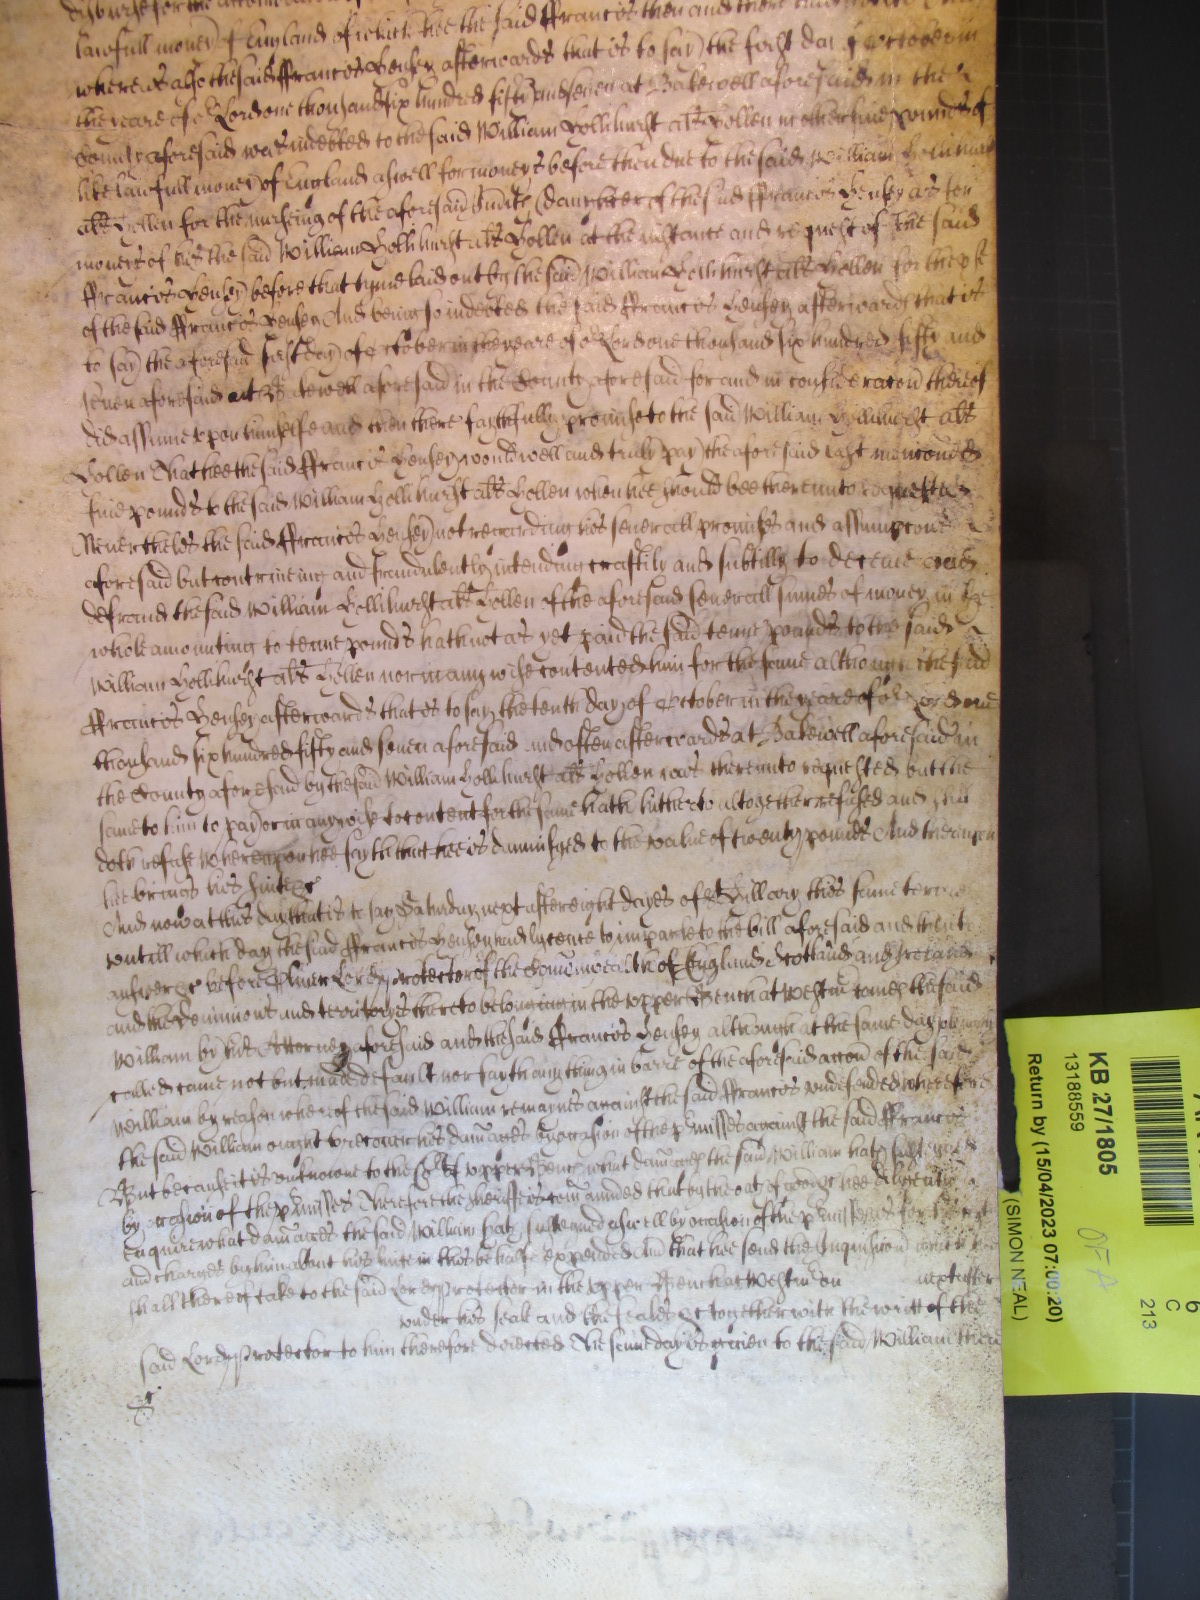 lawfull money of England of which hee the said ffrancis then and there
whereas alsoe the said ffrancis Hensey afterwards that is to say the first day of October in
the yeare of or Lord one thousand six hundred fifty and seven at Bakewell aforesaid in the
County aforesaid was indebted to the said William Hollihurst als Hollen in other five pounds of
like lawfull money of England aswell for moneys before then due to the said William
als Hollen for the nurseing of the aforesaid Judith daughter of the said ffrancis Hensey as for
moneys of his the said William Hollihurst als Hollen at the instance and request of the said
ffrancis Hensey before that tyme laid out by the said William Hollihurst als Hollen for the use
of the said ffrancis Hensey And being so indebted the said ffrancis Hensey afterwards that is
to say the aforesaid first day of October in the yeare of or Lord one thousand six hundred fifty and
seven aforesaid at Bakewell aforesaid in the County aforesaid for and in consideracon thereof
did assume upon himselfe and then there faythfully promise to the said William Hollihurst als
Hollen That hee the said ffrancis Hensey would well and truly pay the aforesaid last menconed
five pounds to the said William Hollihurst als Hollen when hee should bee thereunto requested
Neverthelesse the said ffrancis Hensey not regarding his severall promises and assumpcons
aforesaid but contriveing and fraudulently intending craftily and subtilly to deceive and
defraud the said William Hollihurst als Hollen of the aforesaid severall summes of money in the
whole amounting to tenne pounds hath not as yet paid the said tenne pounds to the said
William Hollihurst als Hollen nor in any wise contented him for the same although the said
ffrancis Hensey afterwards that is to say the tenth day of October in the yeare of or Lord one
thousand six hundred fifty and seven aforesaid and often afterwards at Bakewell aforesaid in
the County aforesaid by the said William Hollihurst als Hollen was thereunto requested but the
same to him to pay or in any wise to content for the same hath hitherto altogether refused and still
doth refuse Whereupon hee sayth that hee is damnifyed to the value of twenty pounds And thereupon
hee brings his suite &c
And now at this day that is to say Saturday next after eight dayes of St Hillary this same terme
untill which day the said ffrancis Hensey had lycence to imparle to the bill aforesaid and then to
answer &c before Oliver Lord Protector of the Comonwealth of England Scotland and Ireland
and the Dominions and territoryes thereto belonging in the upper Bench at Westm comes the said
William by his Attorney aforesaid and the said ffrancis Hensey although at the same day solemnly
called came not but made default nor sayth any thing in barre of the aforesaid accon of the said
William by reason whereof the said William remaynes against the said ffrancis undefended wherefore
the said William ought to recover his damages by occasion of the pmisses against the said ffrancis
But because it is unknowne to the Court of upper Bench what damages the said William hath susteyned
by occasion of the pmisses Therefore the Sheriffe is comaunded that by the oath of twelve hee diligently
enquire what damages the said William hath susteyned aswell by occasion of the pmisses as for his costs
and charges by him about his suite in this behalfe expended And that hee send the Inquisicon
shall thereof take to the said Lord Protector in the upper Bench at Westm on next after
under his seale and the seales &c together with the writt of the
said Lord Protector to him therefore directed The same day is given to the said William there
&c
KB 27/1805
13188559
Return by (15/04/2023 07:00:20)
(SIMON NEAL)
6
C
213